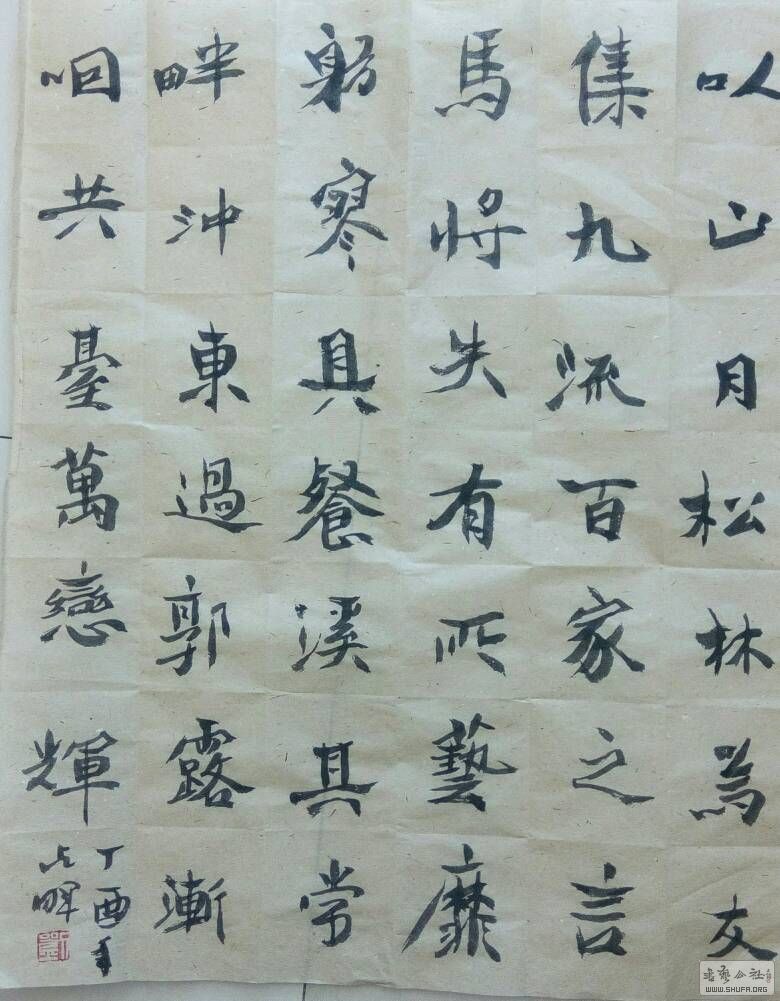 以山月松林為友
集九流百家之言
馬將失有所藝靡
躬寥具餐溪其常
畔沖東過郭露漸
回共臺萬戀輝
丁酉年
WWW.SHUFA.ORG